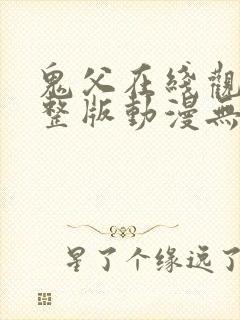 鬼父在綫觀
整版動漫無
星了个缘远了